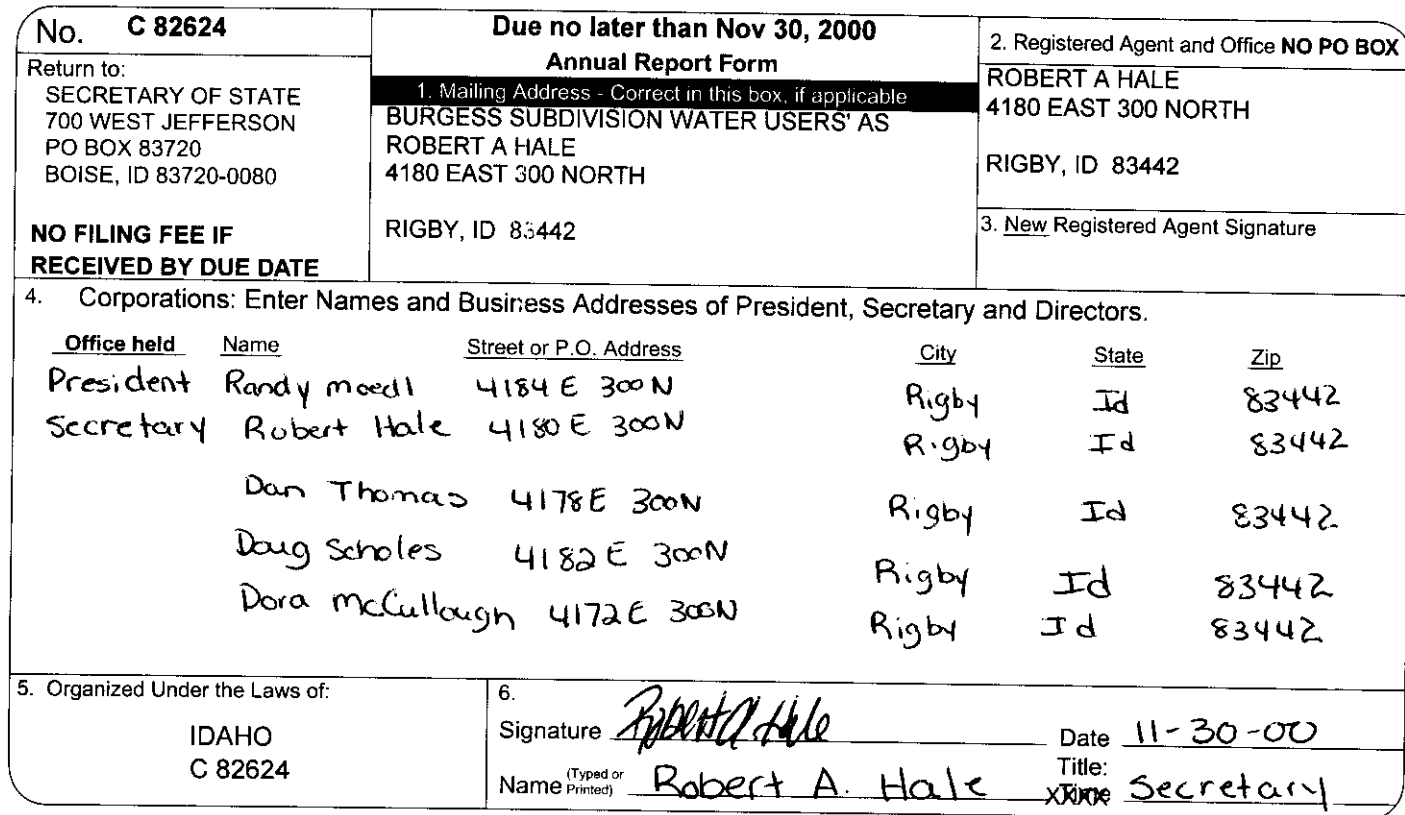 No. C 82624
Return to:
SECRETARY OF STATE
700 WEST JEFFERSON
PO BOX 83720
BOISE, ID 83720-0080
NO FILING FEE IF
RECEIVED BY DUE DATE
Due no later than Nov 30, 2000
Annual Report Form
1. Mailing Address - Correct in this box, if applicable
BURGESS SUBDIVISION WATER USERS' AS
ROBERT A HALE
4180 EAST 300 NORTH
RIGBY, ID 83442
2. Registered Agent and Office NO PO BOX
ROBERT A HALE
4180 EAST 300 NORTH
RIGBY, ID 83442
3. New Registered Agent Signature
4. Corporations: Enter Names and Business Addresses of President, Secretary and Directors.
Office held Name Street or P.O. Address City State Zip
President Randy moedl 4184 E 300 N Rigby Id 83442
Secretary Robert Hale 4180 E 300N Rigby Id 83442
Dan Thomas 4178E 300N Rigby Id 83442
Doug Scholes 4182 E 300N Rigby Id 83442
Dora McCullough 4172 E 300N Rigby Id 83442
5. Organized Under the Laws of:
IDAHO
C 82624
6.
Signature Robert A Hale Date 11-30-00
Name (Typed or Printed) Robert A. Hale Title: Secretary